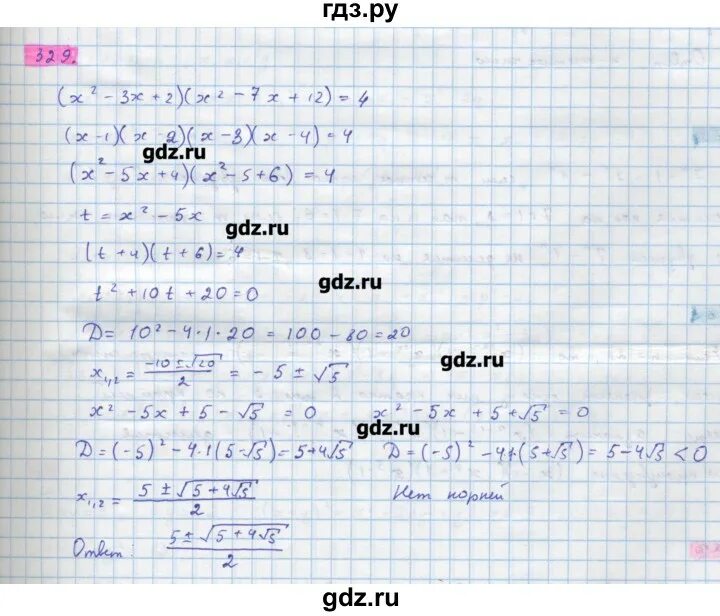 гдз.ру
329.
(x² - 3x + 2)(x² - 7x + 12) = 4
(x - 1)(x - 2)(x - 3)(x - 4) = 4
gdz.ru
(x² - 5x + 4)(x² - 5 + 6) = 4
t = x² - 5x
gdz.ru
(t + 4)(t + 6) = 4
gdz.ru
t² + 10t + 20 = 0
D = 10² - 4·1·20 = 100 - 80 = 20
gdz.ru
x₁,₂ = (-10 ± √20)/2 = - 5 ± √5
x² - 5x + 5 - √5 = 0 x² - 5x + 5 + √5 = 0
gdz.ru
D = (-5)² - 4·1(5-√5) = 5+4√5 D = (-5)² - 4·(5+√5) = 5-4√5 < 0
x₁,₂ = (5 ± √(5 + 4√5))/2 Нет корней
Ответ: (5 ± √(5 + 4√5))/2
gdz.ru